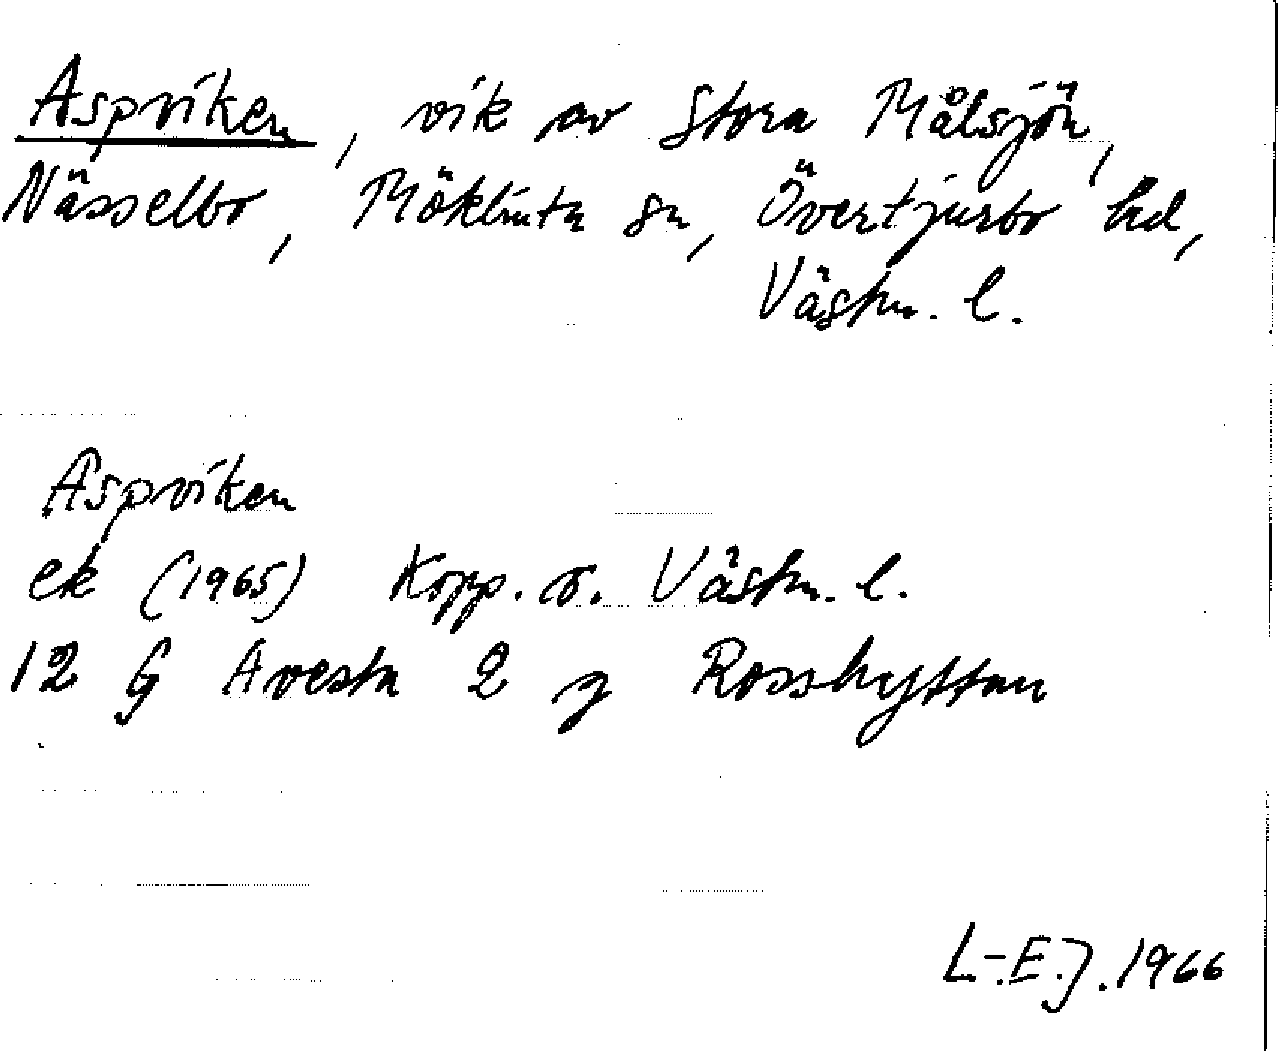 Aspviken, vik av Stora Målsjön,
Nässelbo, Möklinta sn, Övertjurbo hd,
Västm. l.
Aspviken
ek (1965) Kopp. o. Västm. l.
12 G Avesta 2 g Rosshyttan
L.-E.J. 1966